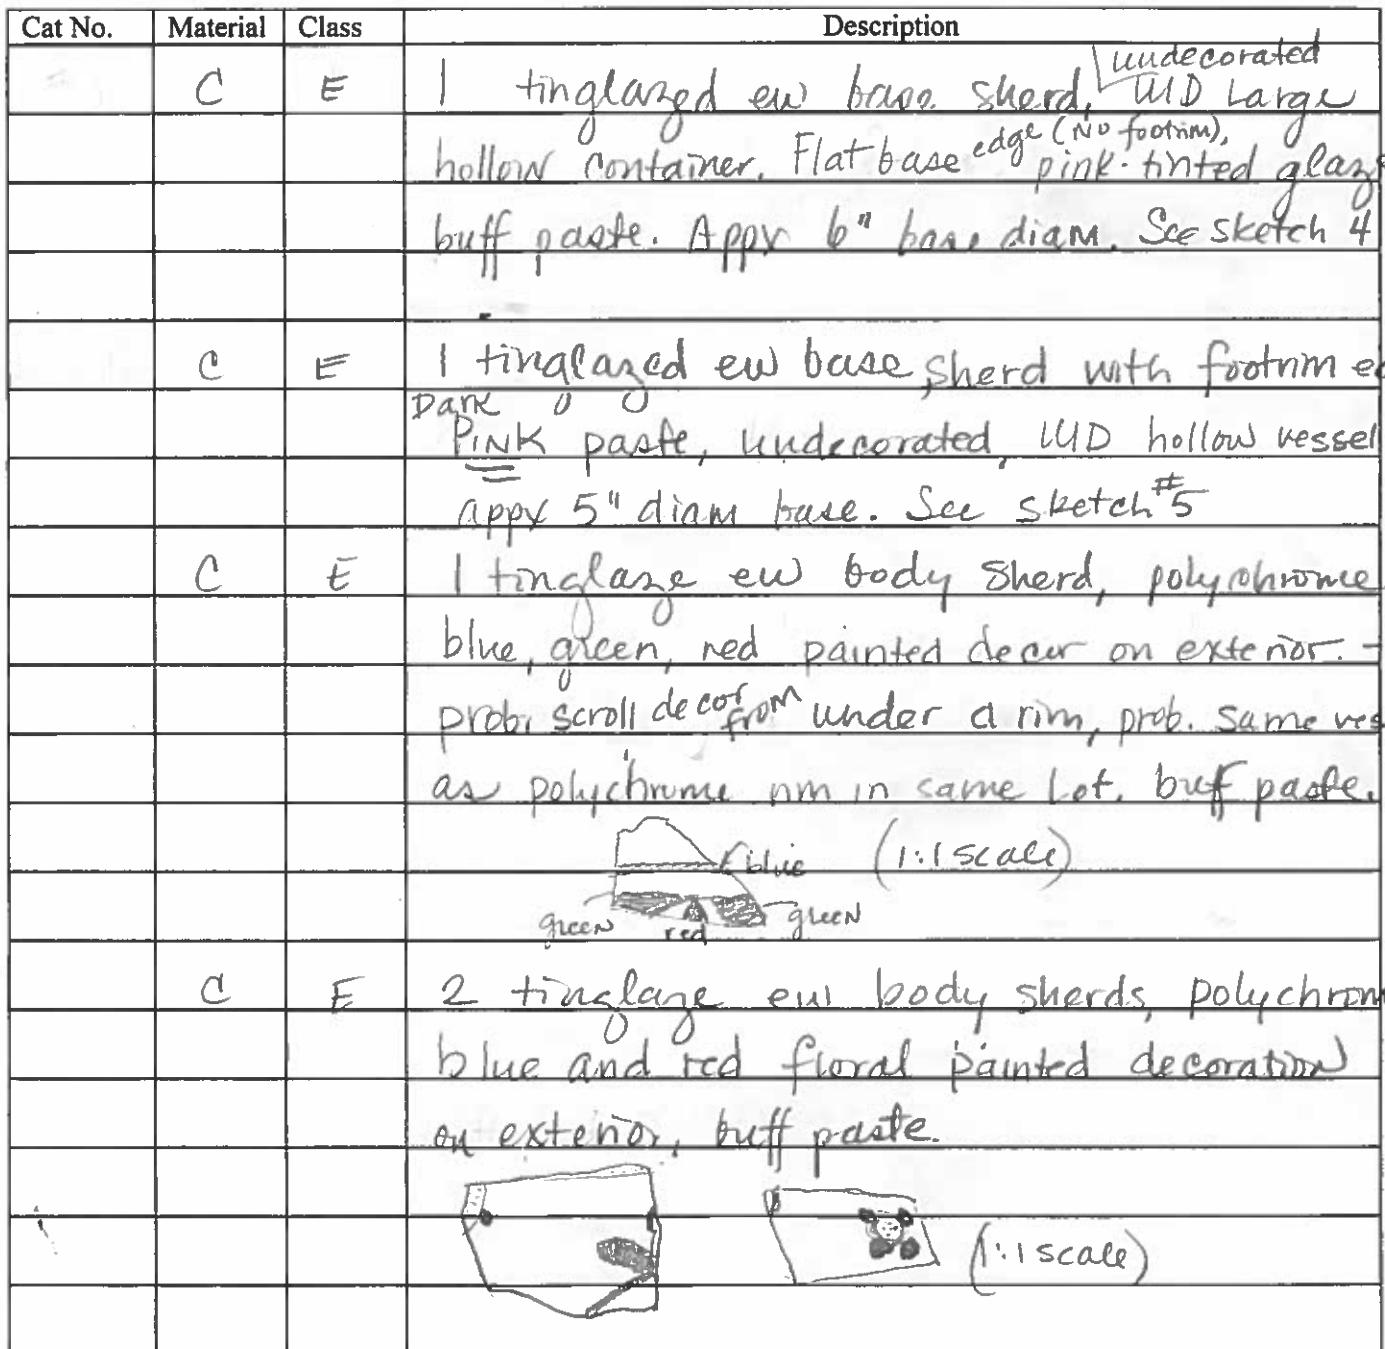 Cat No. Material Class Description
undecorated
C E 1 tinglazed ew base sherd, UID Large
edge (No footrim),
hollow container. Flat base pink-tinted glaz
buff paste. Appx 6" base diam. See sketch 4
C E 1 tinglazed ew base sherd with footrim ed
Dark
PINK paste, undecorated, UID hollow vessel
appx 5" diam base. See sketch #5
C E 1 tinglaze ew body sherd, polychrome
blue, green, red painted decor on exterior. -
prob. scroll decor from under a rim, prob. same ves
as polychrome rim in same Lot. buff paste.
blue (1:1 scale)
green red green
C E 2 tinglaze ew body sherds, polychrom
blue and red floral painted decoration
on exterior, buff paste.
(1:1 scale)